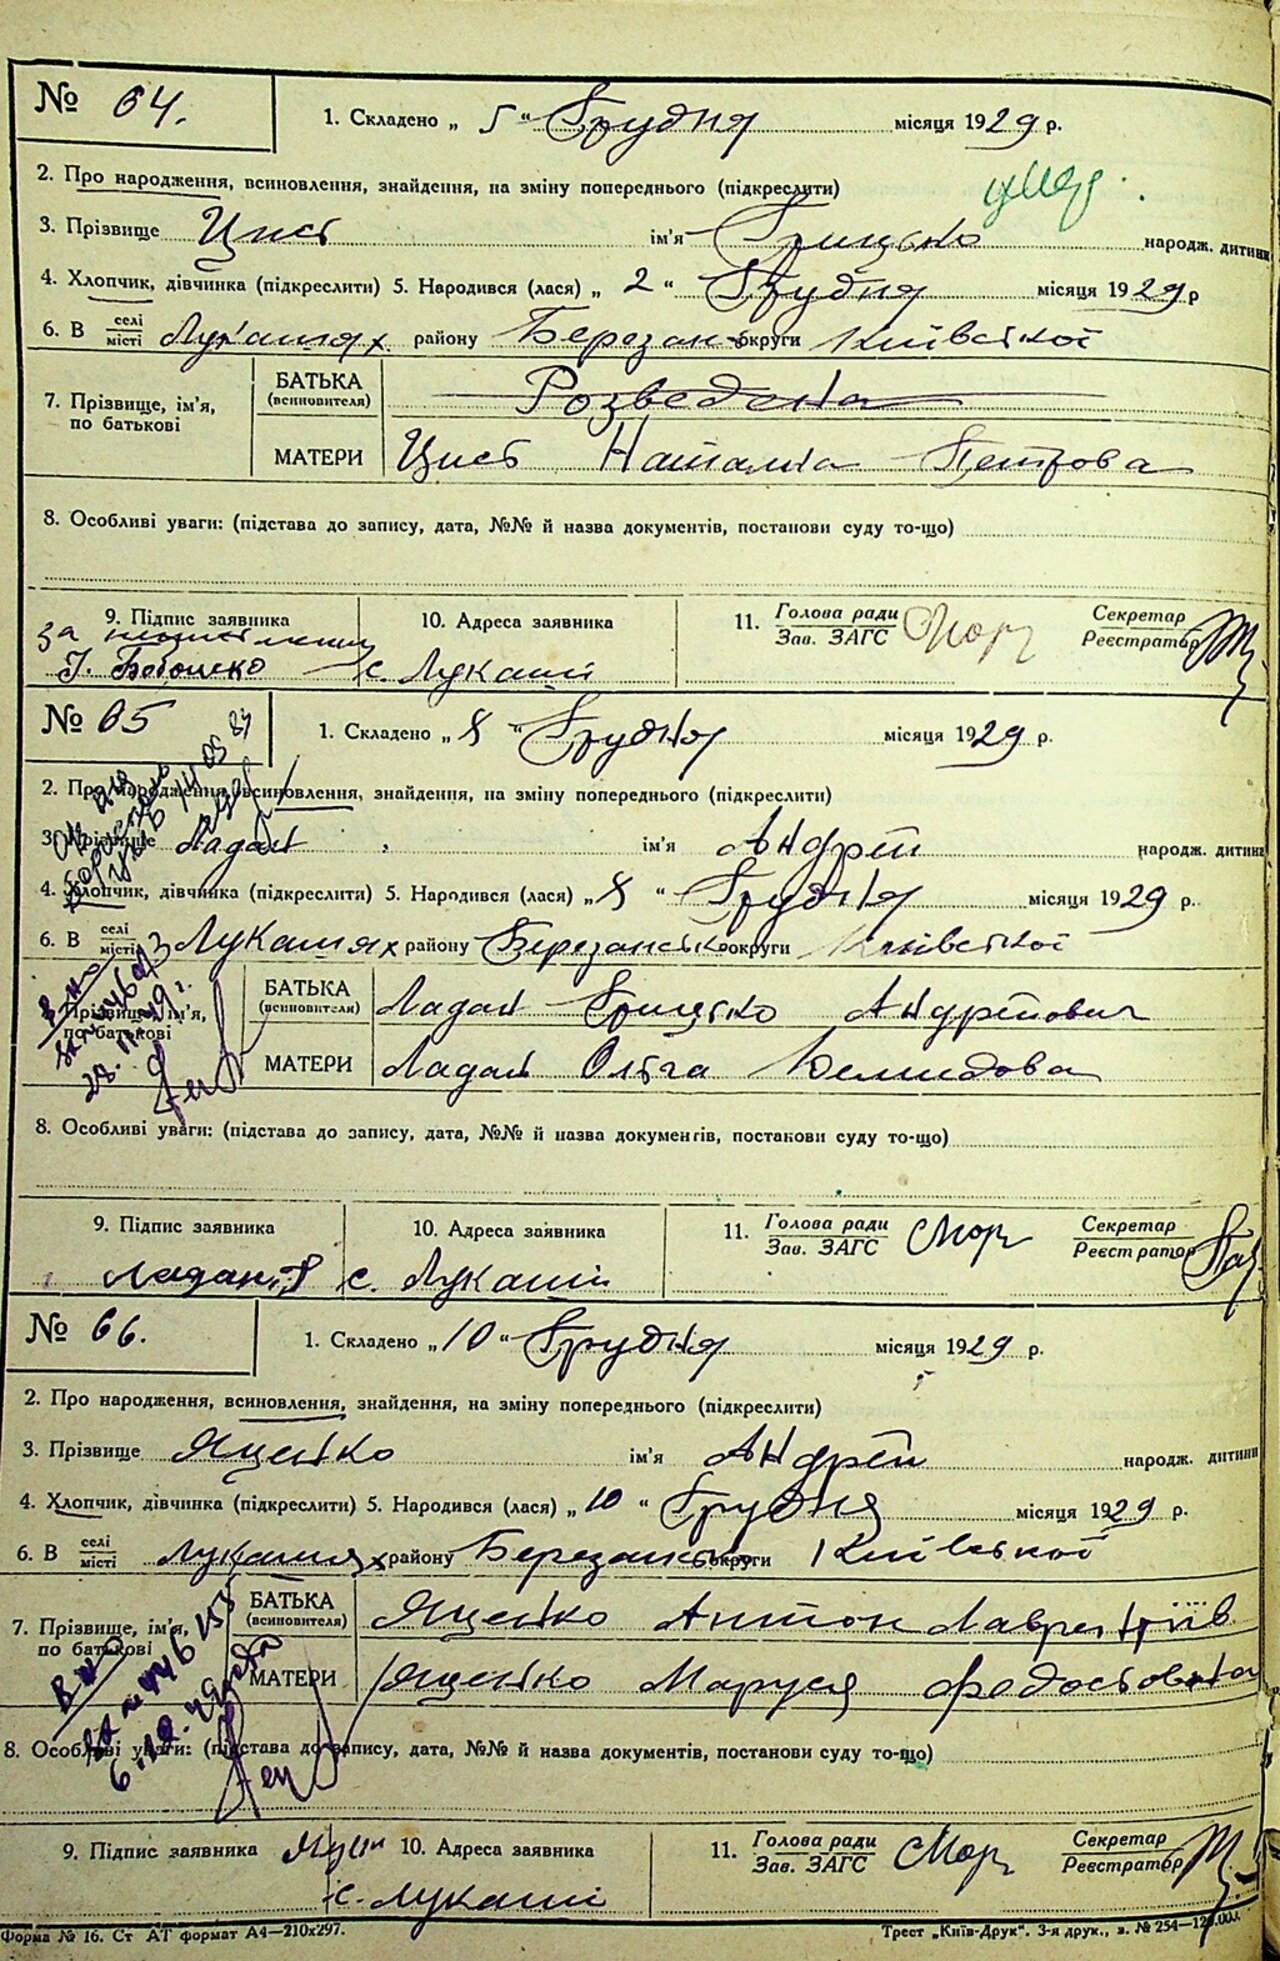 № 64. 1. Складено „ 5 “ Грудня місяця 1929 р.
2. Про народження, всиновлення, знайдення, на зміну попереднього (підкреслити)
3. Прізвище Цист ім'я Грицько народж. дитини
4. Хлопчик, дівчинка (підкреслити) 5. Народився (лася) „ 2 “ Грудня місяця 1929 р
6. В селі місті Лукашях району Березан округи Київської
7. Прізвище, ім'я, по батькові БАТЬКА (всиновителя) Розведена
МАТЕРИ Цист Наталка Петрова
8. Особливі уваги: (підстава до запису, дата, №№ й назва документів, постанови суду то-що)
9. Підпис заявника 10. Адреса заявника 11. Голова ради Зав. ЗАГС Мор Секретар Реєстратор
За
с. Лукаші
№ 65 1. Складено „ 8 “ Грудня місяця 1929 р.
2. Про народження, всиновлення, знайдення, на зміну попереднього (підкреслити)
3. Прізвище Ладан ім'я Андрей народж. дитини
4. Хлопчик, дівчинка (підкреслити) 5. Народився (лася) „ 8 “ Грудня місяця 1929 р.
6. В селі місті Лукашях району Березансько округи Київської
7. Прізвище, ім'я, по батькові БАТЬКА (всиновителя) Ладан Грицько Андрейович
МАТЕРИ Ладан Ольга Демидова
8. Особливі уваги: (підстава до запису, дата, №№ й назва документів, постанови суду то-що)
9. Підпис заявника 10. Адреса заявника 11. Голова ради Зав. ЗАГС Мор Секретар Реєстратор
Ладан с. Лукаші
№ 66. 1. Складено „ 10 “ Грудня місяця 1929 р.
2. Про народження, всиновлення, знайдення, на зміну попереднього (підкреслити)
3. Прізвище Яценко ім'я Андрей народж. дитини
4. Хлопчик, дівчинка (підкреслити) 5. Народився (лася) „ 10 “ Грудня місяця 1929 р.
6. В селі місті Лукашях району Березансько округи Київської
7. Прізвище, ім'я, по батькові БАТЬКА (всиновителя) Яценко Антон Лаврентіїв
МАТЕРИ Яценко Маруся Федосовна
8. Особливі уваги: (підстава до запису, дата, №№ й назва документів, постанови суду то-що)
9. Підпис заявника 10. Адреса заявника 11. Голова ради Зав. ЗАГС Мор Секретар Реєстратор
с. Лукаші
Форма № 16. Ст АТ формат А4—210х297. Трест „Київ-Друк“. 3-я друк., з. № 254—